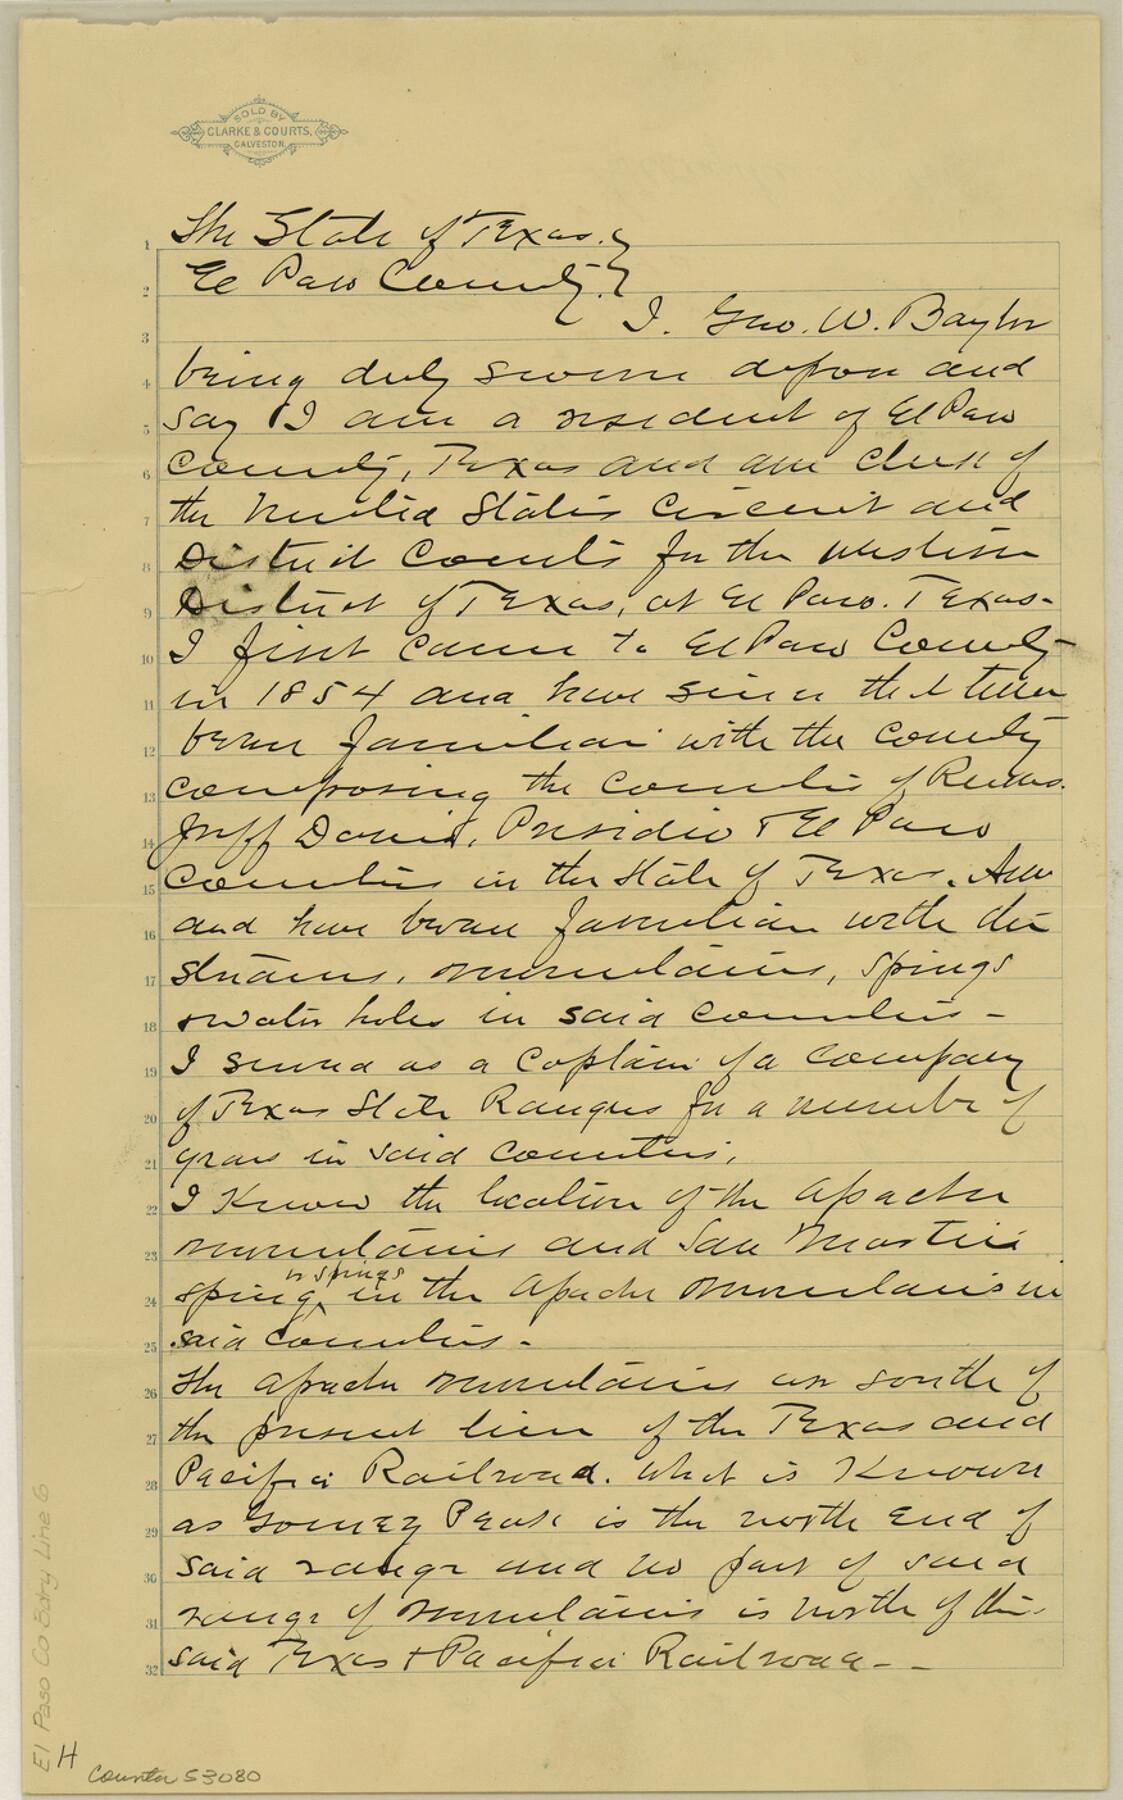 SOLD BY
CLARKE & COURTS,
GALVESTON.
The State of Texas. }
El Paso County. }
I. Geo. W. Baylor
being duly sworn depose and
say I am a resident of El Paso
County, Texas and am clerk of
the United States Circuit and
District Courts for the Western
District of Texas, at El Paso. Texas-
I first came to El Paso County
in 1854 and have since that time
been familiar with the county
composing the counties of Reeves.
Jeff Davis, Presidio & El Paso
Counties in the State of Texas. Am
and have been familiar with the
streams, mountains, springs
& water holes in said counties -
I served as a Captain of a company
of Texas State Rangers for a number of
years in said counties,
I know the location of the Apache
mountains and San Martin
or springs
spring ^ in the Apache mountains in
said counties -
The Apache mountains are south of
the present line of the Texas and
Pacific Railroad. What is known
as Gomez Peak is the north end of
said range and no part of said
range of mountains is north of the
said Texas & Pacific Railroad - -
1
2
3
4
5
6
7
8
9
10
11
12
13
14
15
16
17
18
19
20
21
22
23
24
25
26
27
28
29
30
31
32
El Paso Co Bdry Line 6
H
Counter 53080